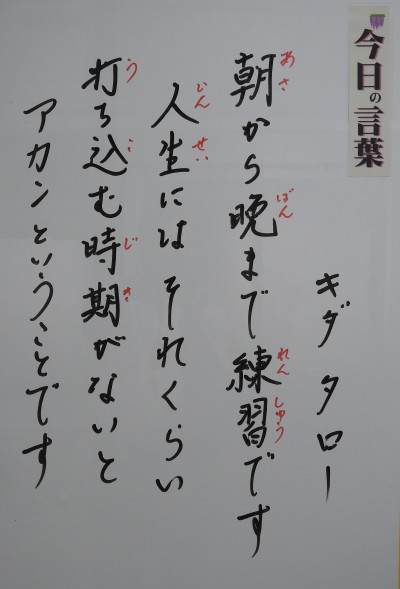 今日の言葉
キダ タロー
朝から晩まで練習です
あさ ばん れん しゅう
人生にはそれくらい
じん せい
打ち込む時期がないと
う こ じ き
アカンということです